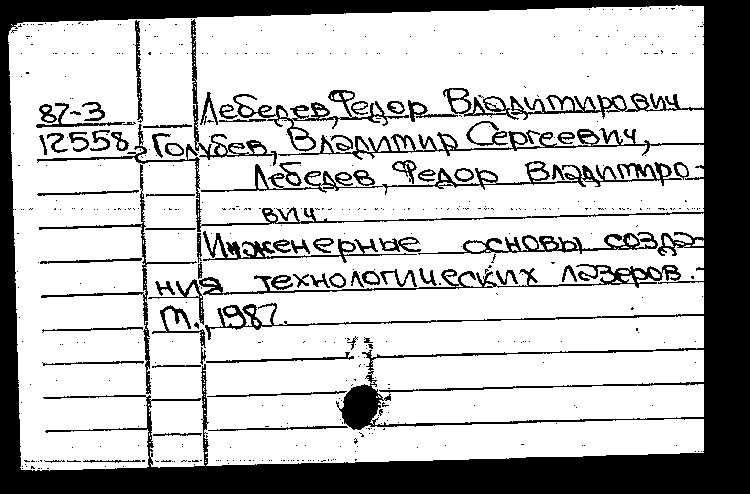 87-3 Лебедев, Федор Владимирович
12558₂ Голубев, Владимир Сергеевич,
Лебедев, Федор Владимиро-
вич.
Инженерные основы созда-
ния технологических лазеров.-
М., 1987.